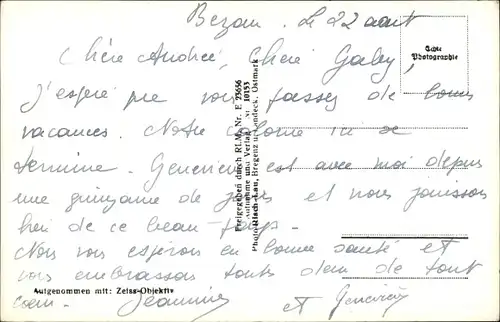 Bezau. Le 22 août
Chère Andrée, Chère Gaby,
J'espère que vous passez de bonnes
vacances. Notre colonie ici se
termine. Geneviève est avec moi depuis
une quinzaine de jours et nous jouissons
bien de ce beau temps.
Nous vous espérons en bonne santé et
vous embrassons toutes deux de tout
coeur. Jeannine
et Geneviève
Echte
Photographie
Freigegeben durch RLM. Nr. E 23656
Aufnahme und Verlag Nr. 10153
Photo Risch-Lau, Bregenz u. Landeck, Ostmark
Aufgenommen mit: Zeiss-Objektiv